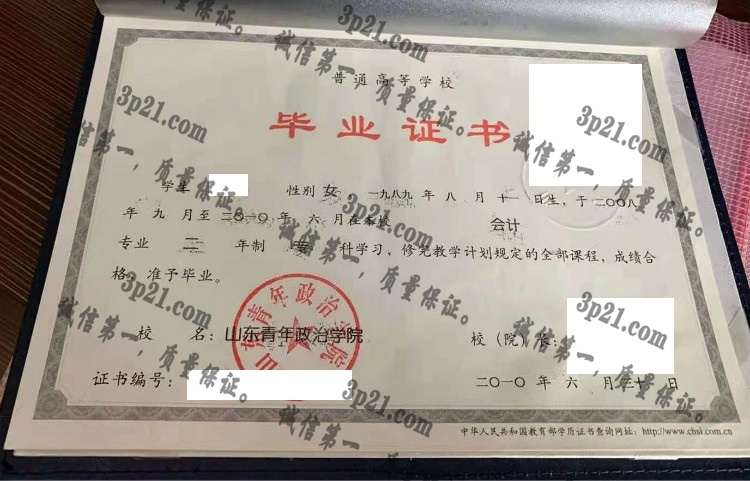 普通高等学校
毕业证书
学生 性别 女 一九八九年 八 月 十一日生，于二〇〇八
年 九 月至二〇一〇年 六 月在本校 会计
专业 三 年制 专 科学习，修完教学计划规定的全部课程，成绩合
格，准予毕业。
校 名：山东青年政治学院
山东青年政治学院
校（院）长：
证书编号：
二〇一〇 年 六 月三十日
中华人民共和国教育部学历证书查询网址：http://www.chsi.com.cn
3p21.com
诚信第一，质量保证。
3p21.com
诚信第一，质量保证。
3p21.com
诚信第一，质量保证。
3p21.com
诚信第一，质量保证。
3p21.com
诚信第一，质量保证。
3p21.com
诚信第一，质量保证。
3p21.com
诚信第一，质量保证。
3p21.com
诚信第一，质量保证。